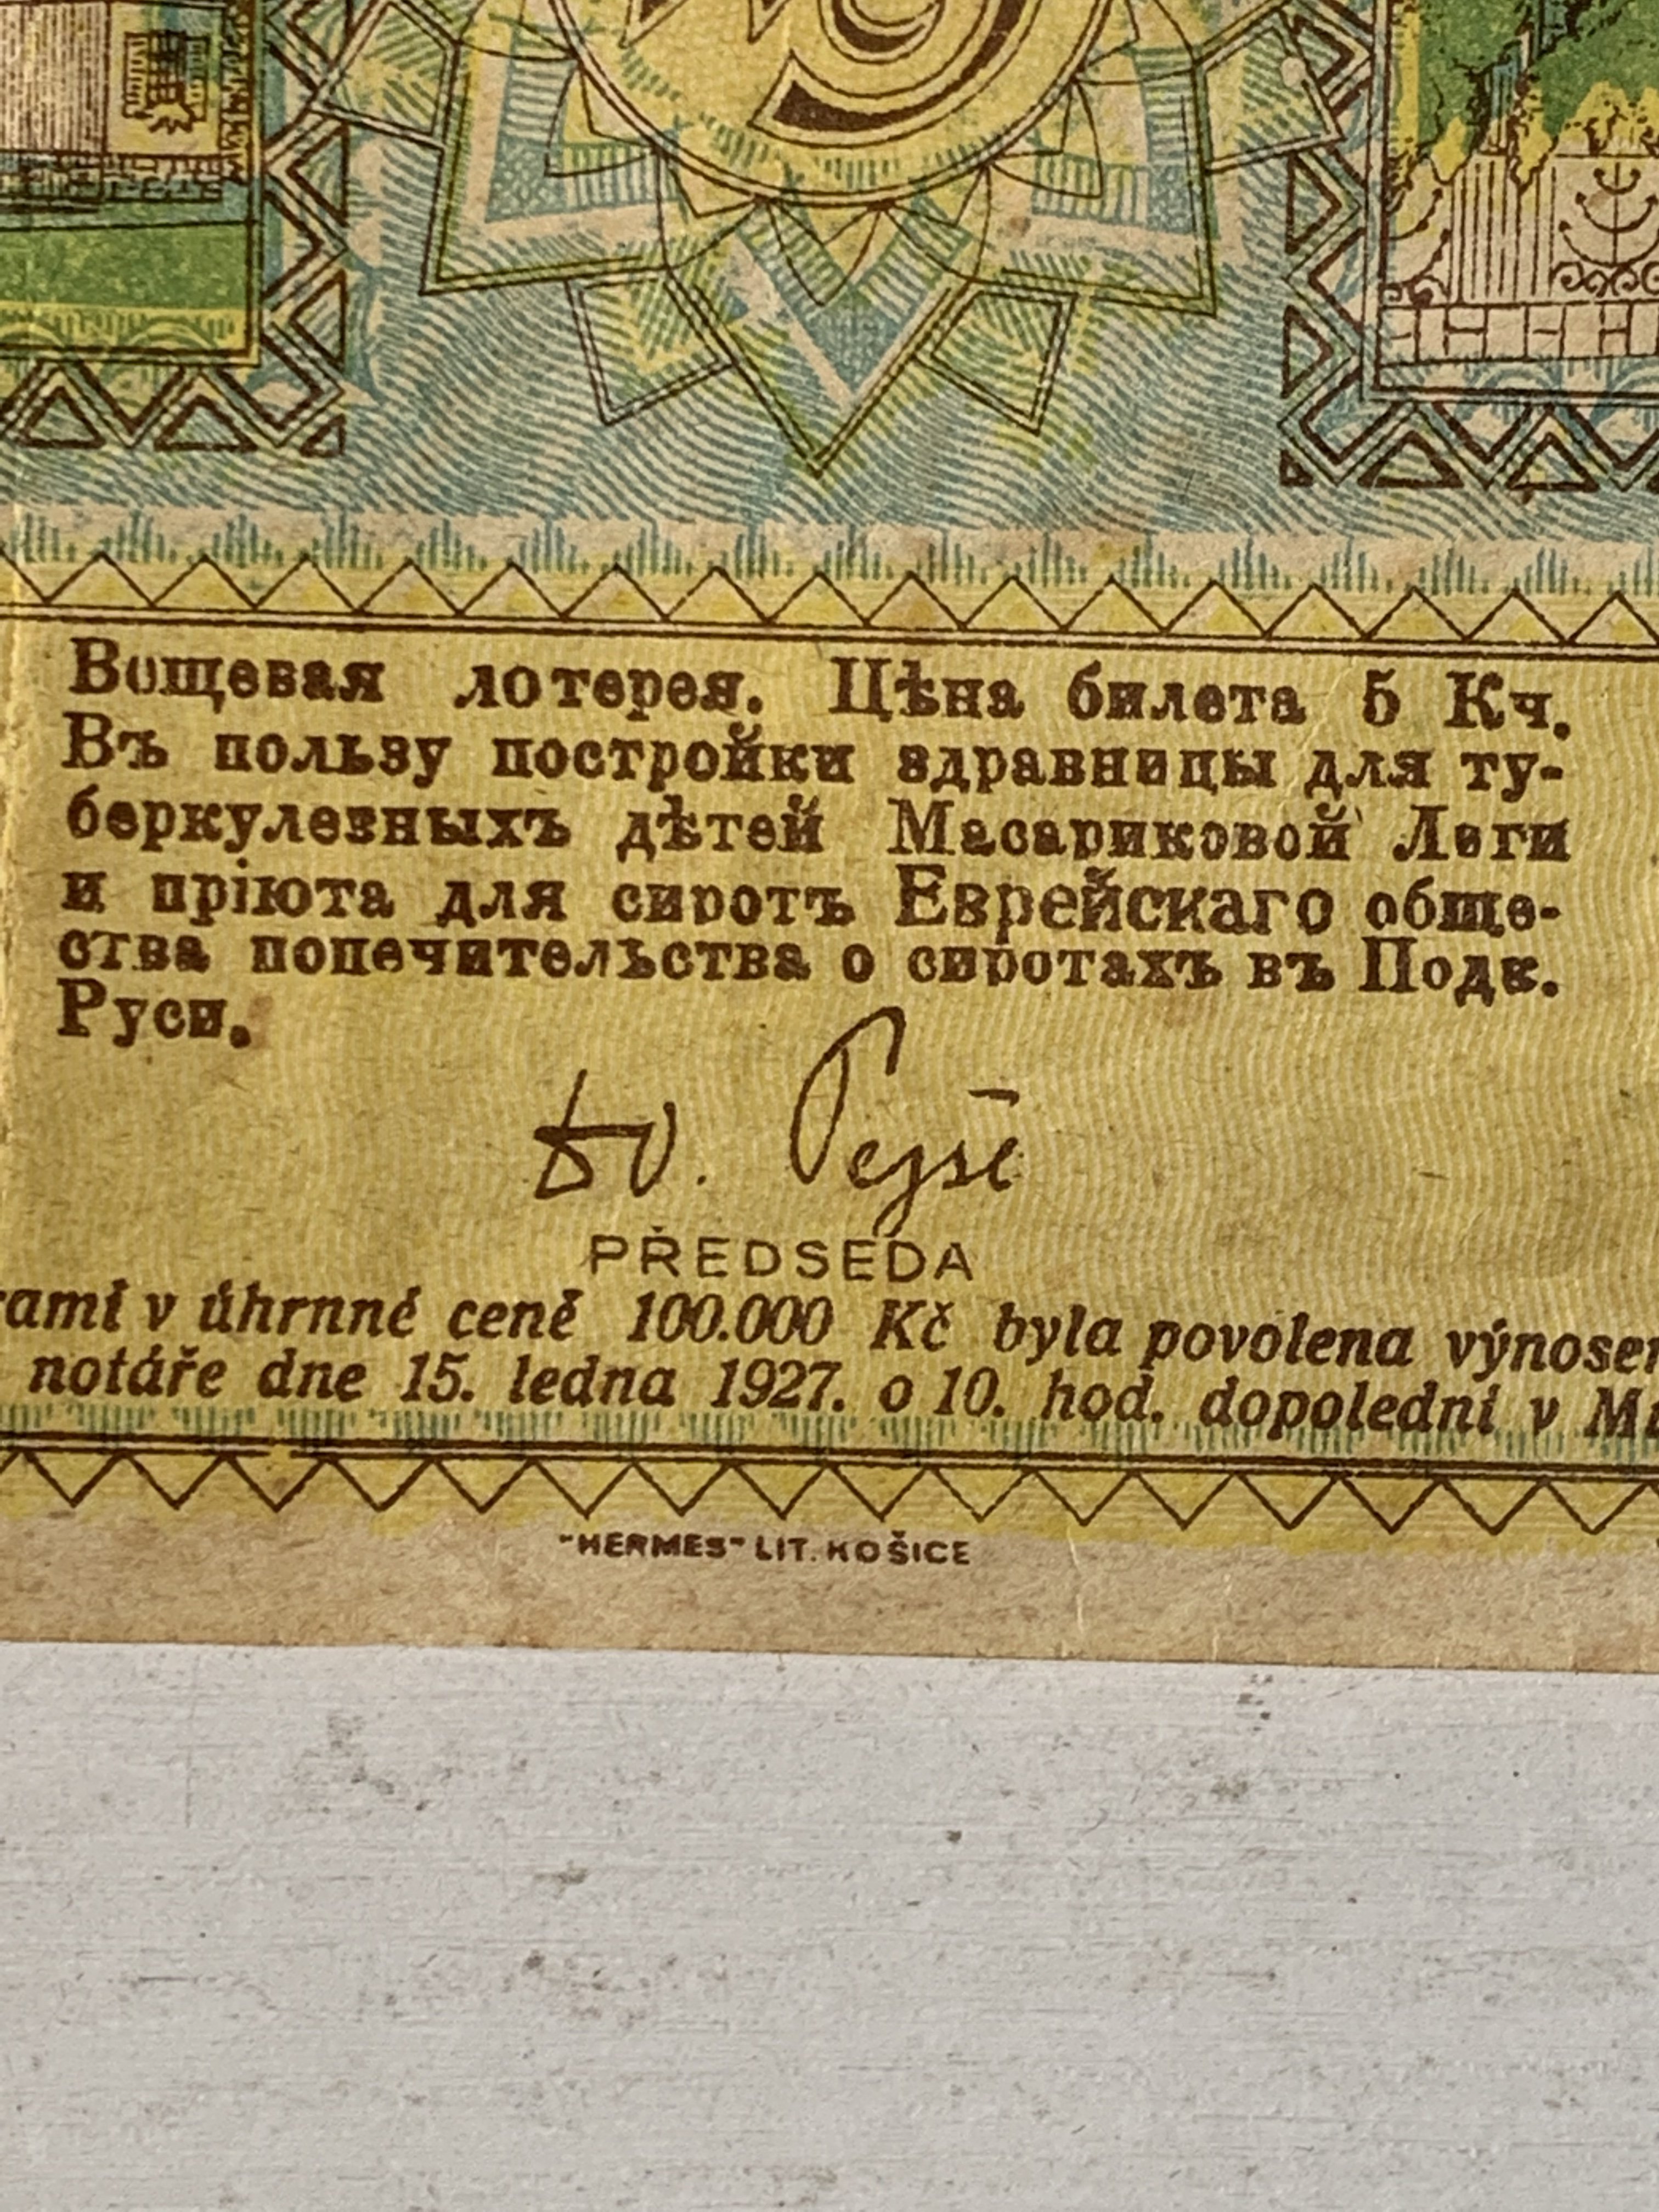 5
Вещевая лотерея. Цѣна билета 5 Кч.
Въ пользу постройки здравницы для ту-
беркулезныхъ дѣтей Масариковой Леги
и пріюта для сиротъ Еврейскаго обще-
ства попечительства о сиротахъ въ Подк.
Руси.
PŘEDSEDA
v úhrnné ceně 100.000 Kč byla povolena
notáře dne 15. ledna 1927. o 10. hod. dopolední v
"HERMES" LIT. KOŠICE